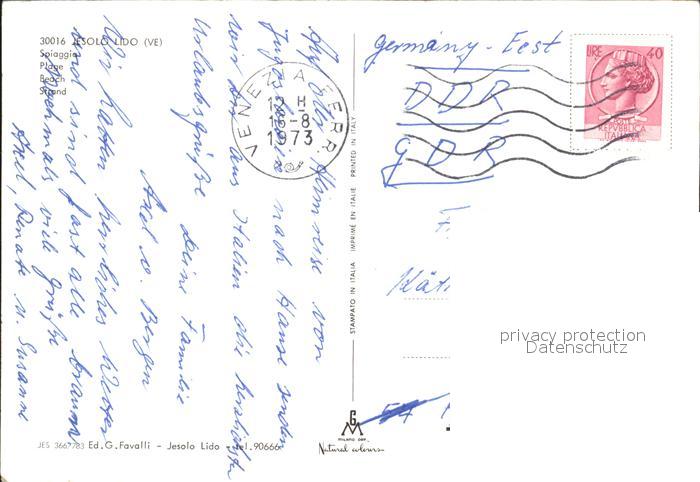 30016 JESOLO LIDO (VE)
Spiaggia
Plage
Beach
Strand
Auf der Heimreise von
Jugoslawien nach Hause senden
wir Dir aus Italien die herzlichsten
Urlaubsgrüße
Deine Familie
Axel u.
Wir hatten herrliches Wetter
und sind fast alle braun
Nochmals viele Grüße
Axel, Renate u. Susanne
VENEZIA FERR.
12 H
16-8
1973
STAMPATO IN ITALIA IMPRIMÉ EN ITALIE PRINTED IN ITALY
Germany - Eest
DDR
GDR
LIRE 40
POSTE
REPVBBLICA
ITALIANA
privacy protection
Datenschutz
G
M
MILANO
Natural colours
JES 3667783 Ed.G.Favalli - Jesolo Lido - tel.90666